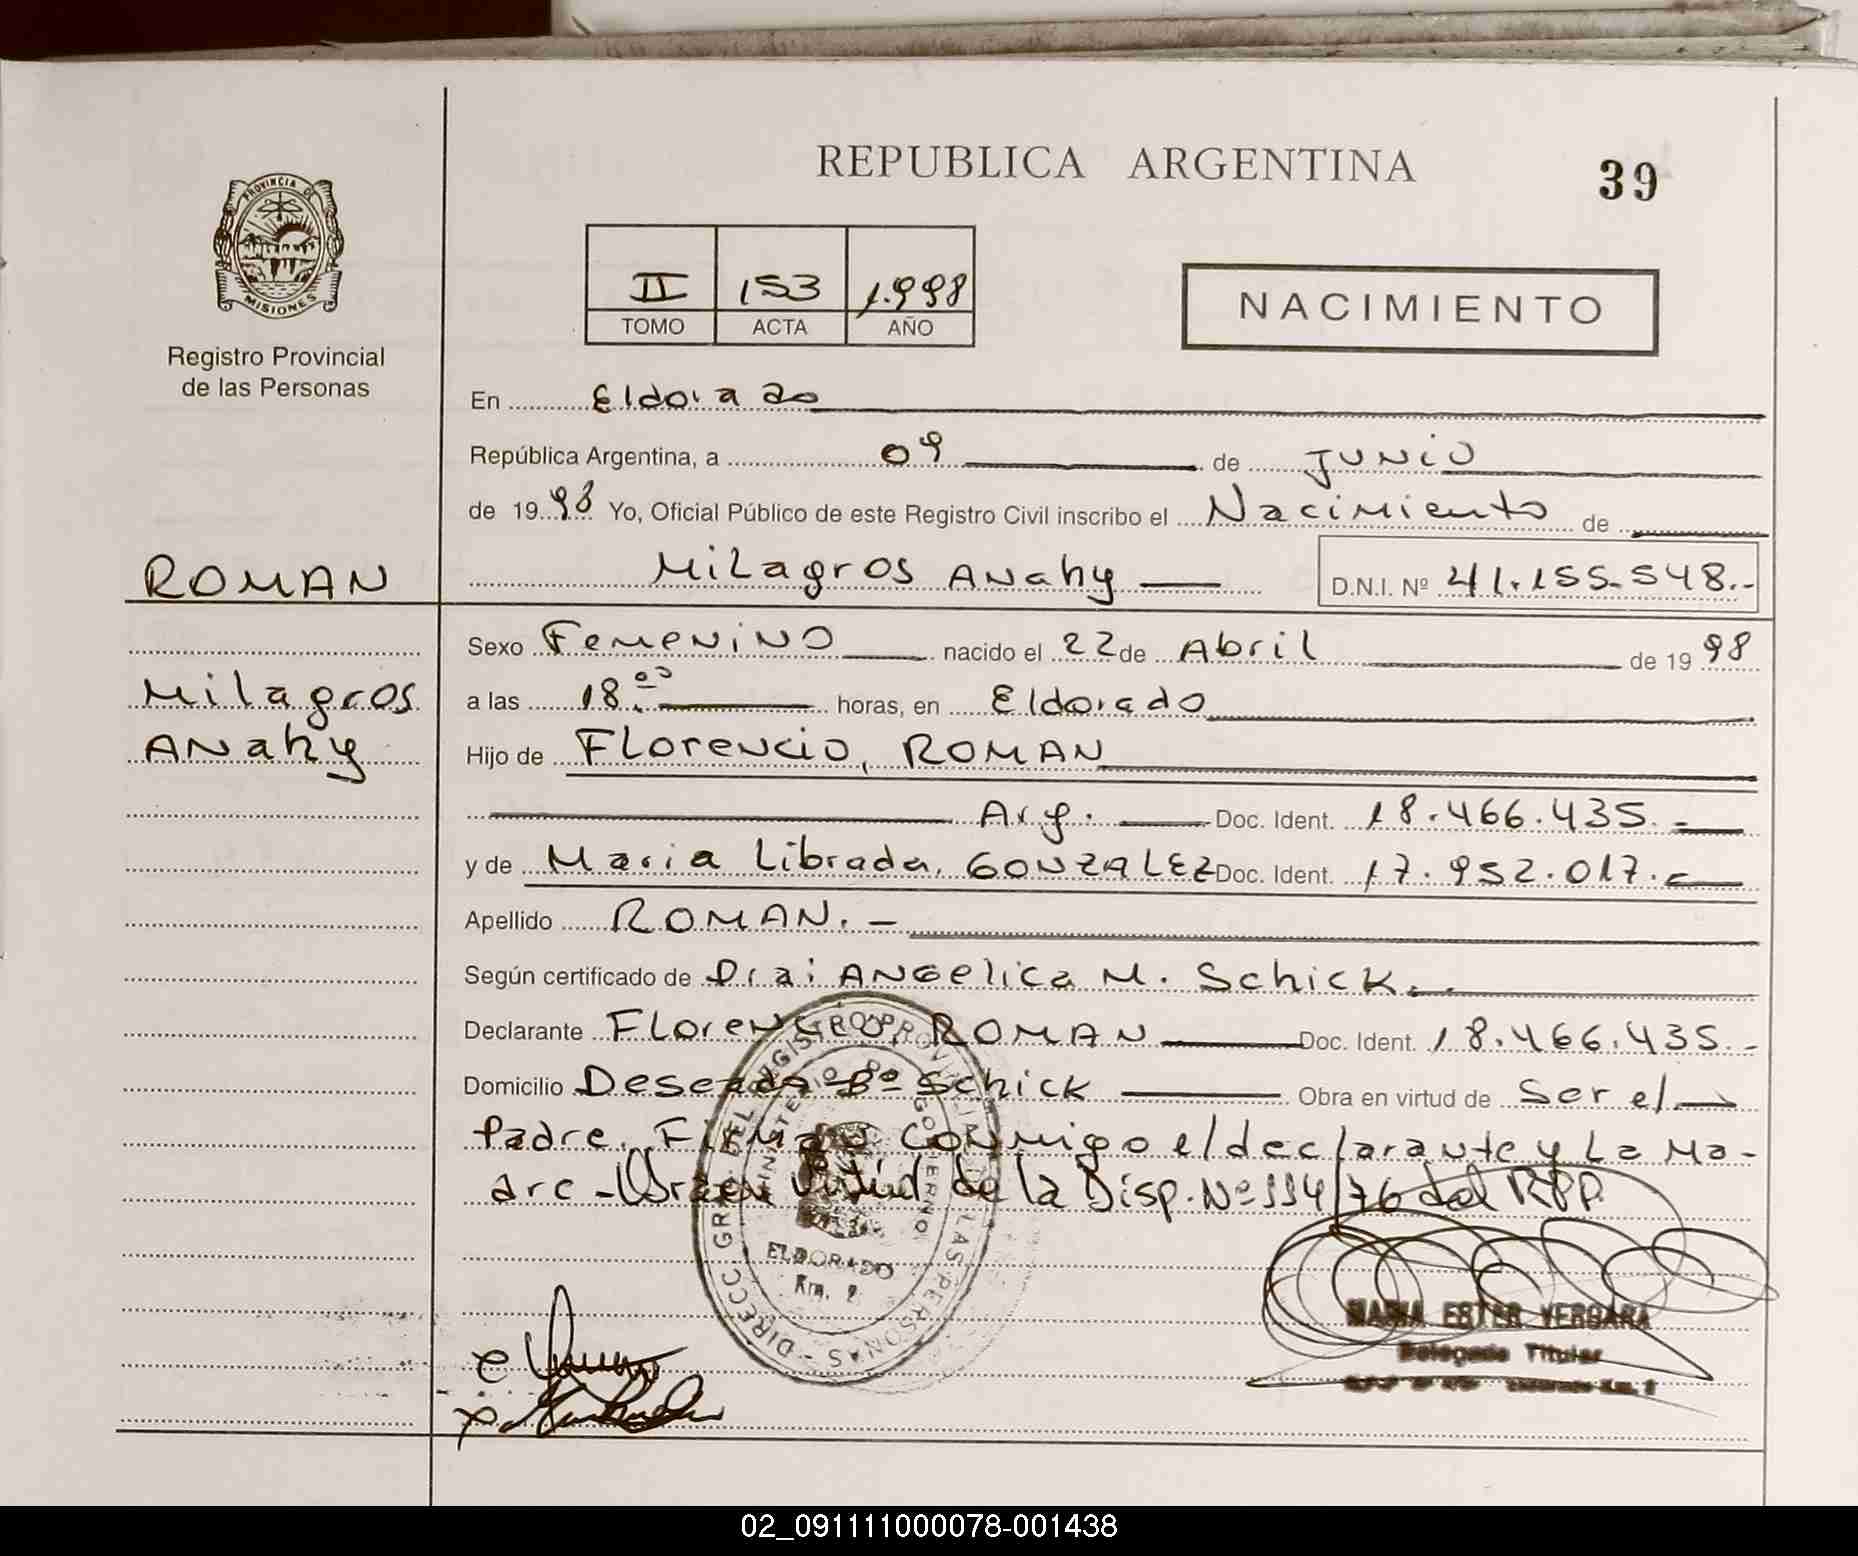 REPUBLICA ARGENTINA
39
PROVINCIA DE
MISIONES
Registro Provincial
de las Personas
II 153 1.998
TOMO ACTA AÑO
NACIMIENTO
En Eldorado
República Argentina, a 09 de Junio
de 1998 Yo, Oficial Público de este Registro Civil inscribo el Nacimiento de
ROMAN
Milagros Anahy D.N.I. Nº 41.155.548.-
Sexo Femenino nacido el 22 de Abril de 1998
Milagros
a las 18.00 horas, en Eldorado
Anahy
Hijo de Florencio, ROMAN
Arg. Doc. Ident. 18.466.435.-
y de Maria Librada, GONZALEZ Doc. Ident. 17.952.017.-
Apellido ROMAN.-
Según certificado de Dra: Angelica M. Schick.-
Declarante Florencio ROMAN Doc. Ident. 18.466.435.-
Domicilio Deseado Bº Schick Obra en virtud de Ser el
Padre. Firman conmigo el declarante y La Ma-
dre - Obra en Virtud de la Disp. Nº 114/76 del RPP.
DIRECC. GRAL. DEL REGISTRO PROVINCIAL DE LAS PERSONAS -
MINISTERIO DE GOBIERNO
ELDORADO
Km. 2
MARIA ESTER VERGARA
Delegada Titular
Eldorado Km. 2
02_091111000078-001438